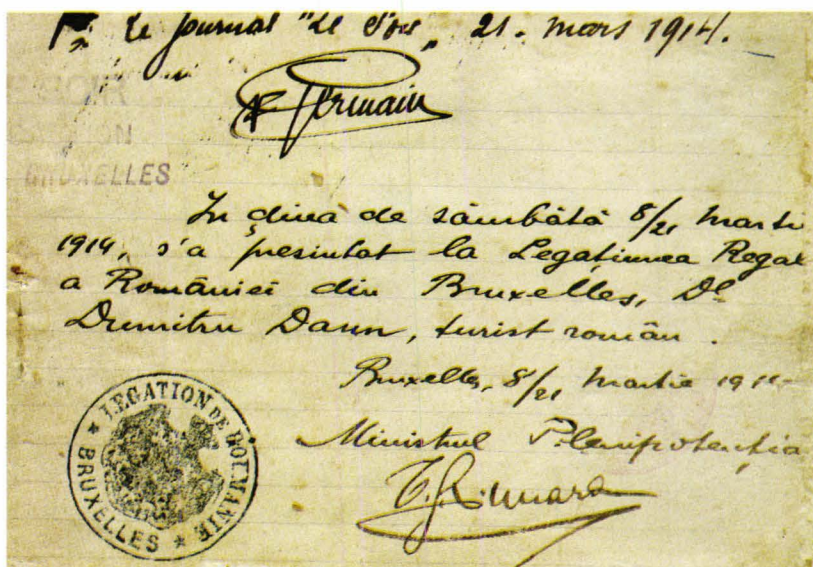 Le journal "Le Soir", 21. mars 1914.
Germain
BRUXELLES
In ziua de sâmbătă 8/21 Martie
1914, s'a presintat la Legaţiunea Regal
a României din Bruxelles, Dl
Dumitru Dann, turist român.
Bruxelles, 8/21 Martie 191
Ministrul Plenipotenţia
LEGATION DE ROUMANIE
* BRUXELLES *